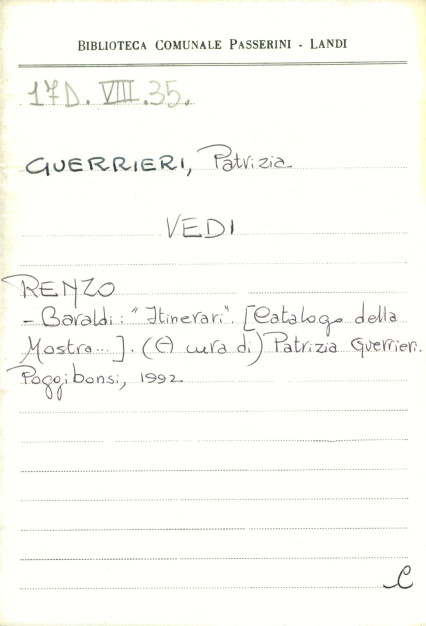 BIBLIOTECA COMUNALE PASSERINI - LANDI
17D. VIII. 35.
GUERRIERI, Patrizia
VEDI
RENZO
- Baraldi: "Itinerari". [Catalogo della
Mostra...]. (A cura di) Patrizia Guerrieri.
Poggibonsi, 1992
C